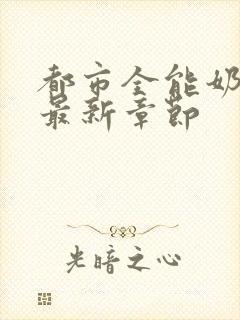 都市全能奶
最新章節
光暗之心